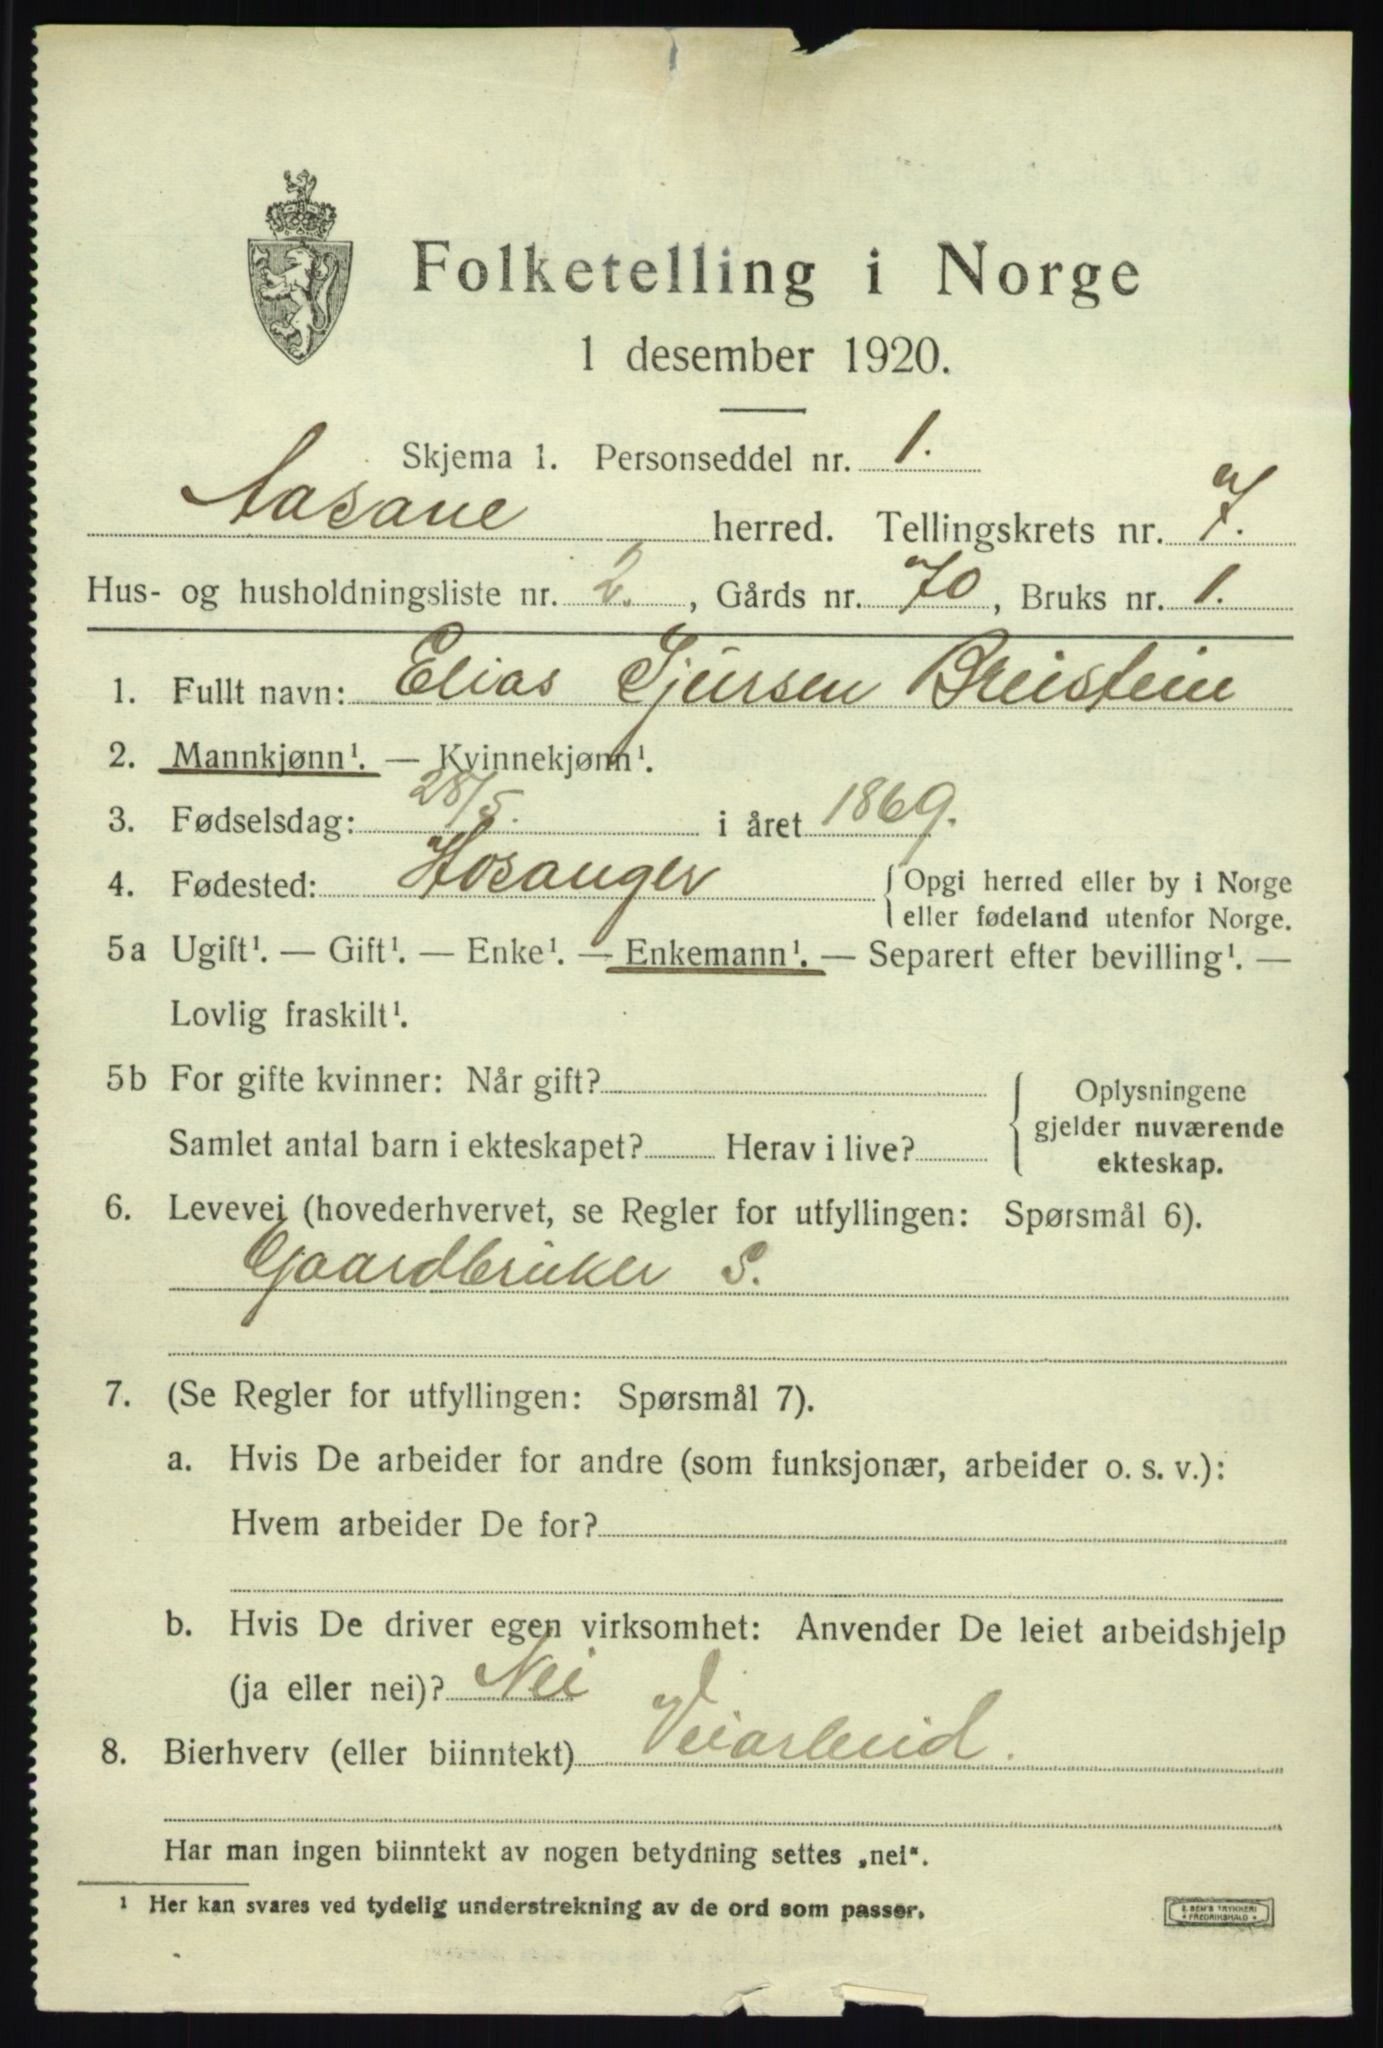 Folketelling i Norge
1 desember 1920.
Skjema 1. Personseddel nr. 1.
Aasane herred. Tellingskrets nr. 7.
Hus- og husholdningsliste nr. 2., Gårds nr. 70, Bruks nr. 1.
1. Fullt navn: Elias Sjursen Breistein
2. Mannkjønn¹. — Kvinnekjønn¹.
3. Fødselsdag: 28/5. i året 1869.
4. Fødested: Hosanger { Opgi herred eller by i Norge
eller fødeland utenfor Norge.
5a Ugift¹. — Gift¹. — Enke¹. — Enkemann¹. — Separert efter bevilling¹. —
Lovlig fraskilt¹.
5b For gifte kvinner: Når gift?
Samlet antal barn i ekteskapet? Herav i live?
{ Oplysningene
gjelder nuværende
ekteskap.
6. Levevei (hovederhvervet, se Regler for utfyllingen: Spørsmål 6).
Gaardbruker S.
7. (Se Regler for utfyllingen: Spørsmål 7).
a. Hvis De arbeider for andre (som funksjonær, arbeider o. s. v.):
Hvem arbeider De for?
b. Hvis De driver egen virksomhet: Anvender De leiet arbeidshjelp
(ja eller nei)? Nei
8. Bierhverv (eller biinntekt) Veiarbeid.
Har man ingen biinntekt av nogen betydning settes „nei“.
¹ Her kan svares ved tydelig understrekning av de ord som passer.
E. SEM'S TRYKKERI
* FREDRIKSHALD *